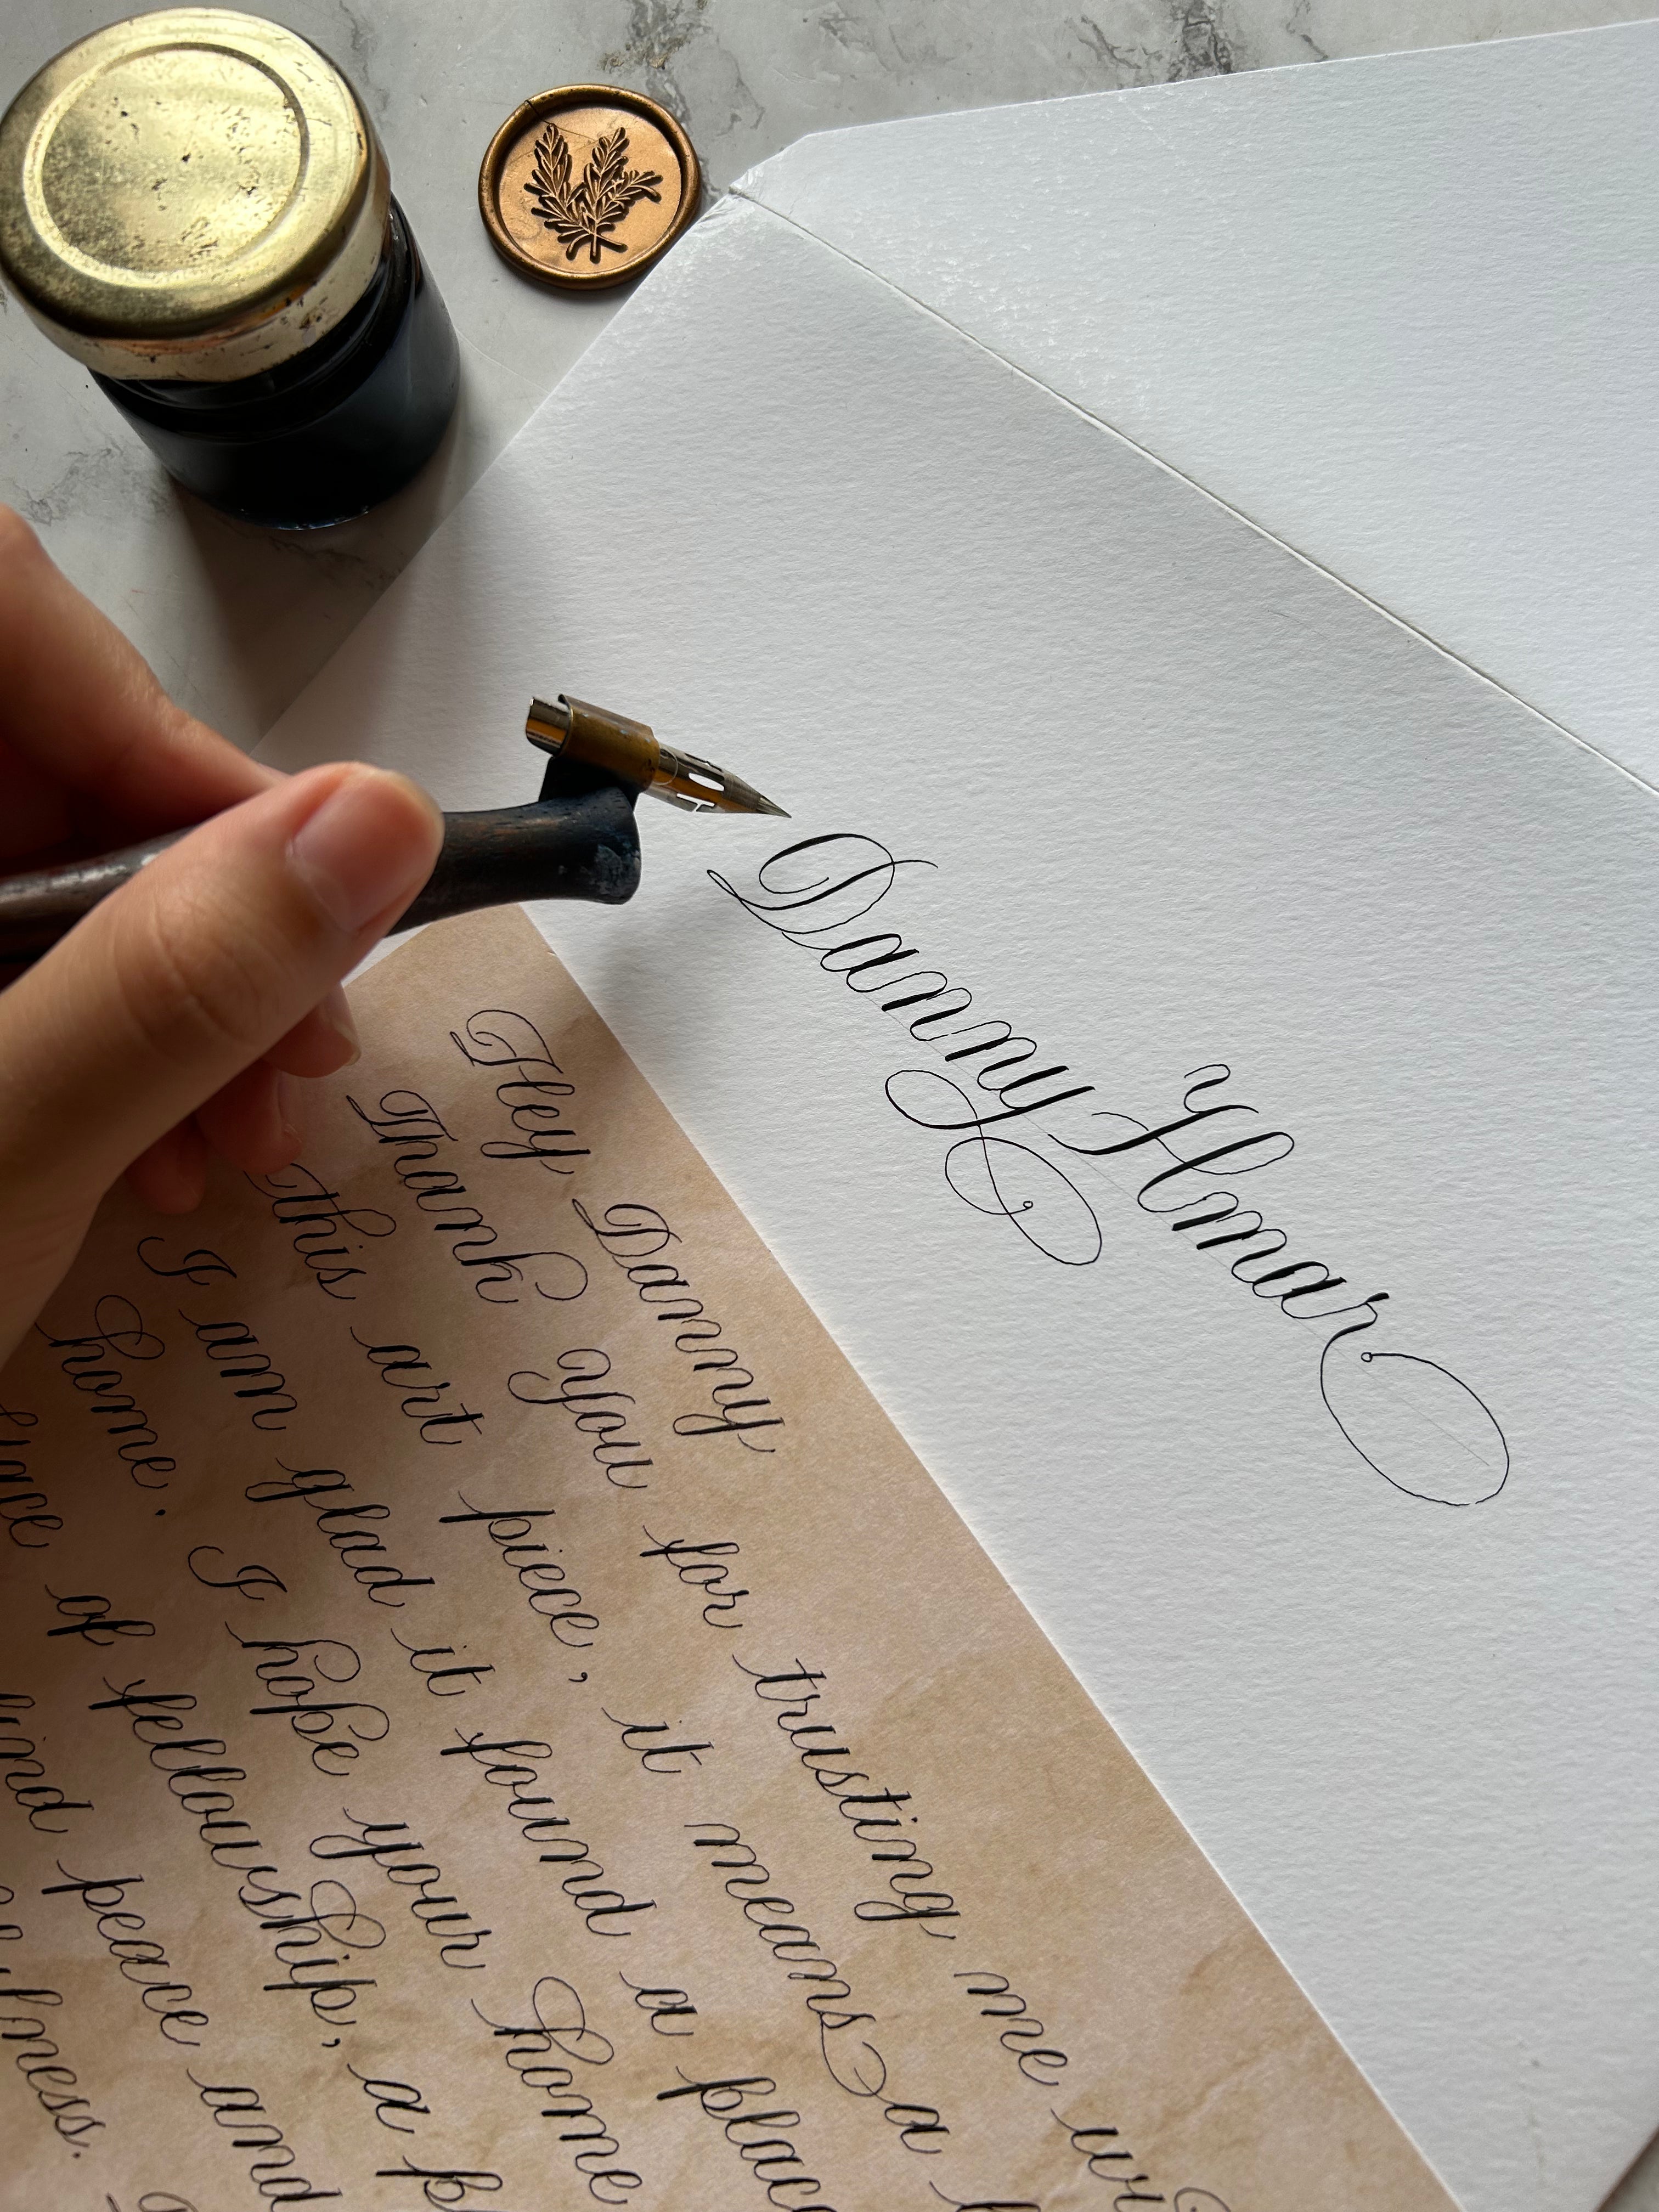 Danny Hmar
Hey Danny
Thank You for trusting me
this art piece, it means a
I am glad it found a place
home. I hope your home
of fellowship, a
peace and